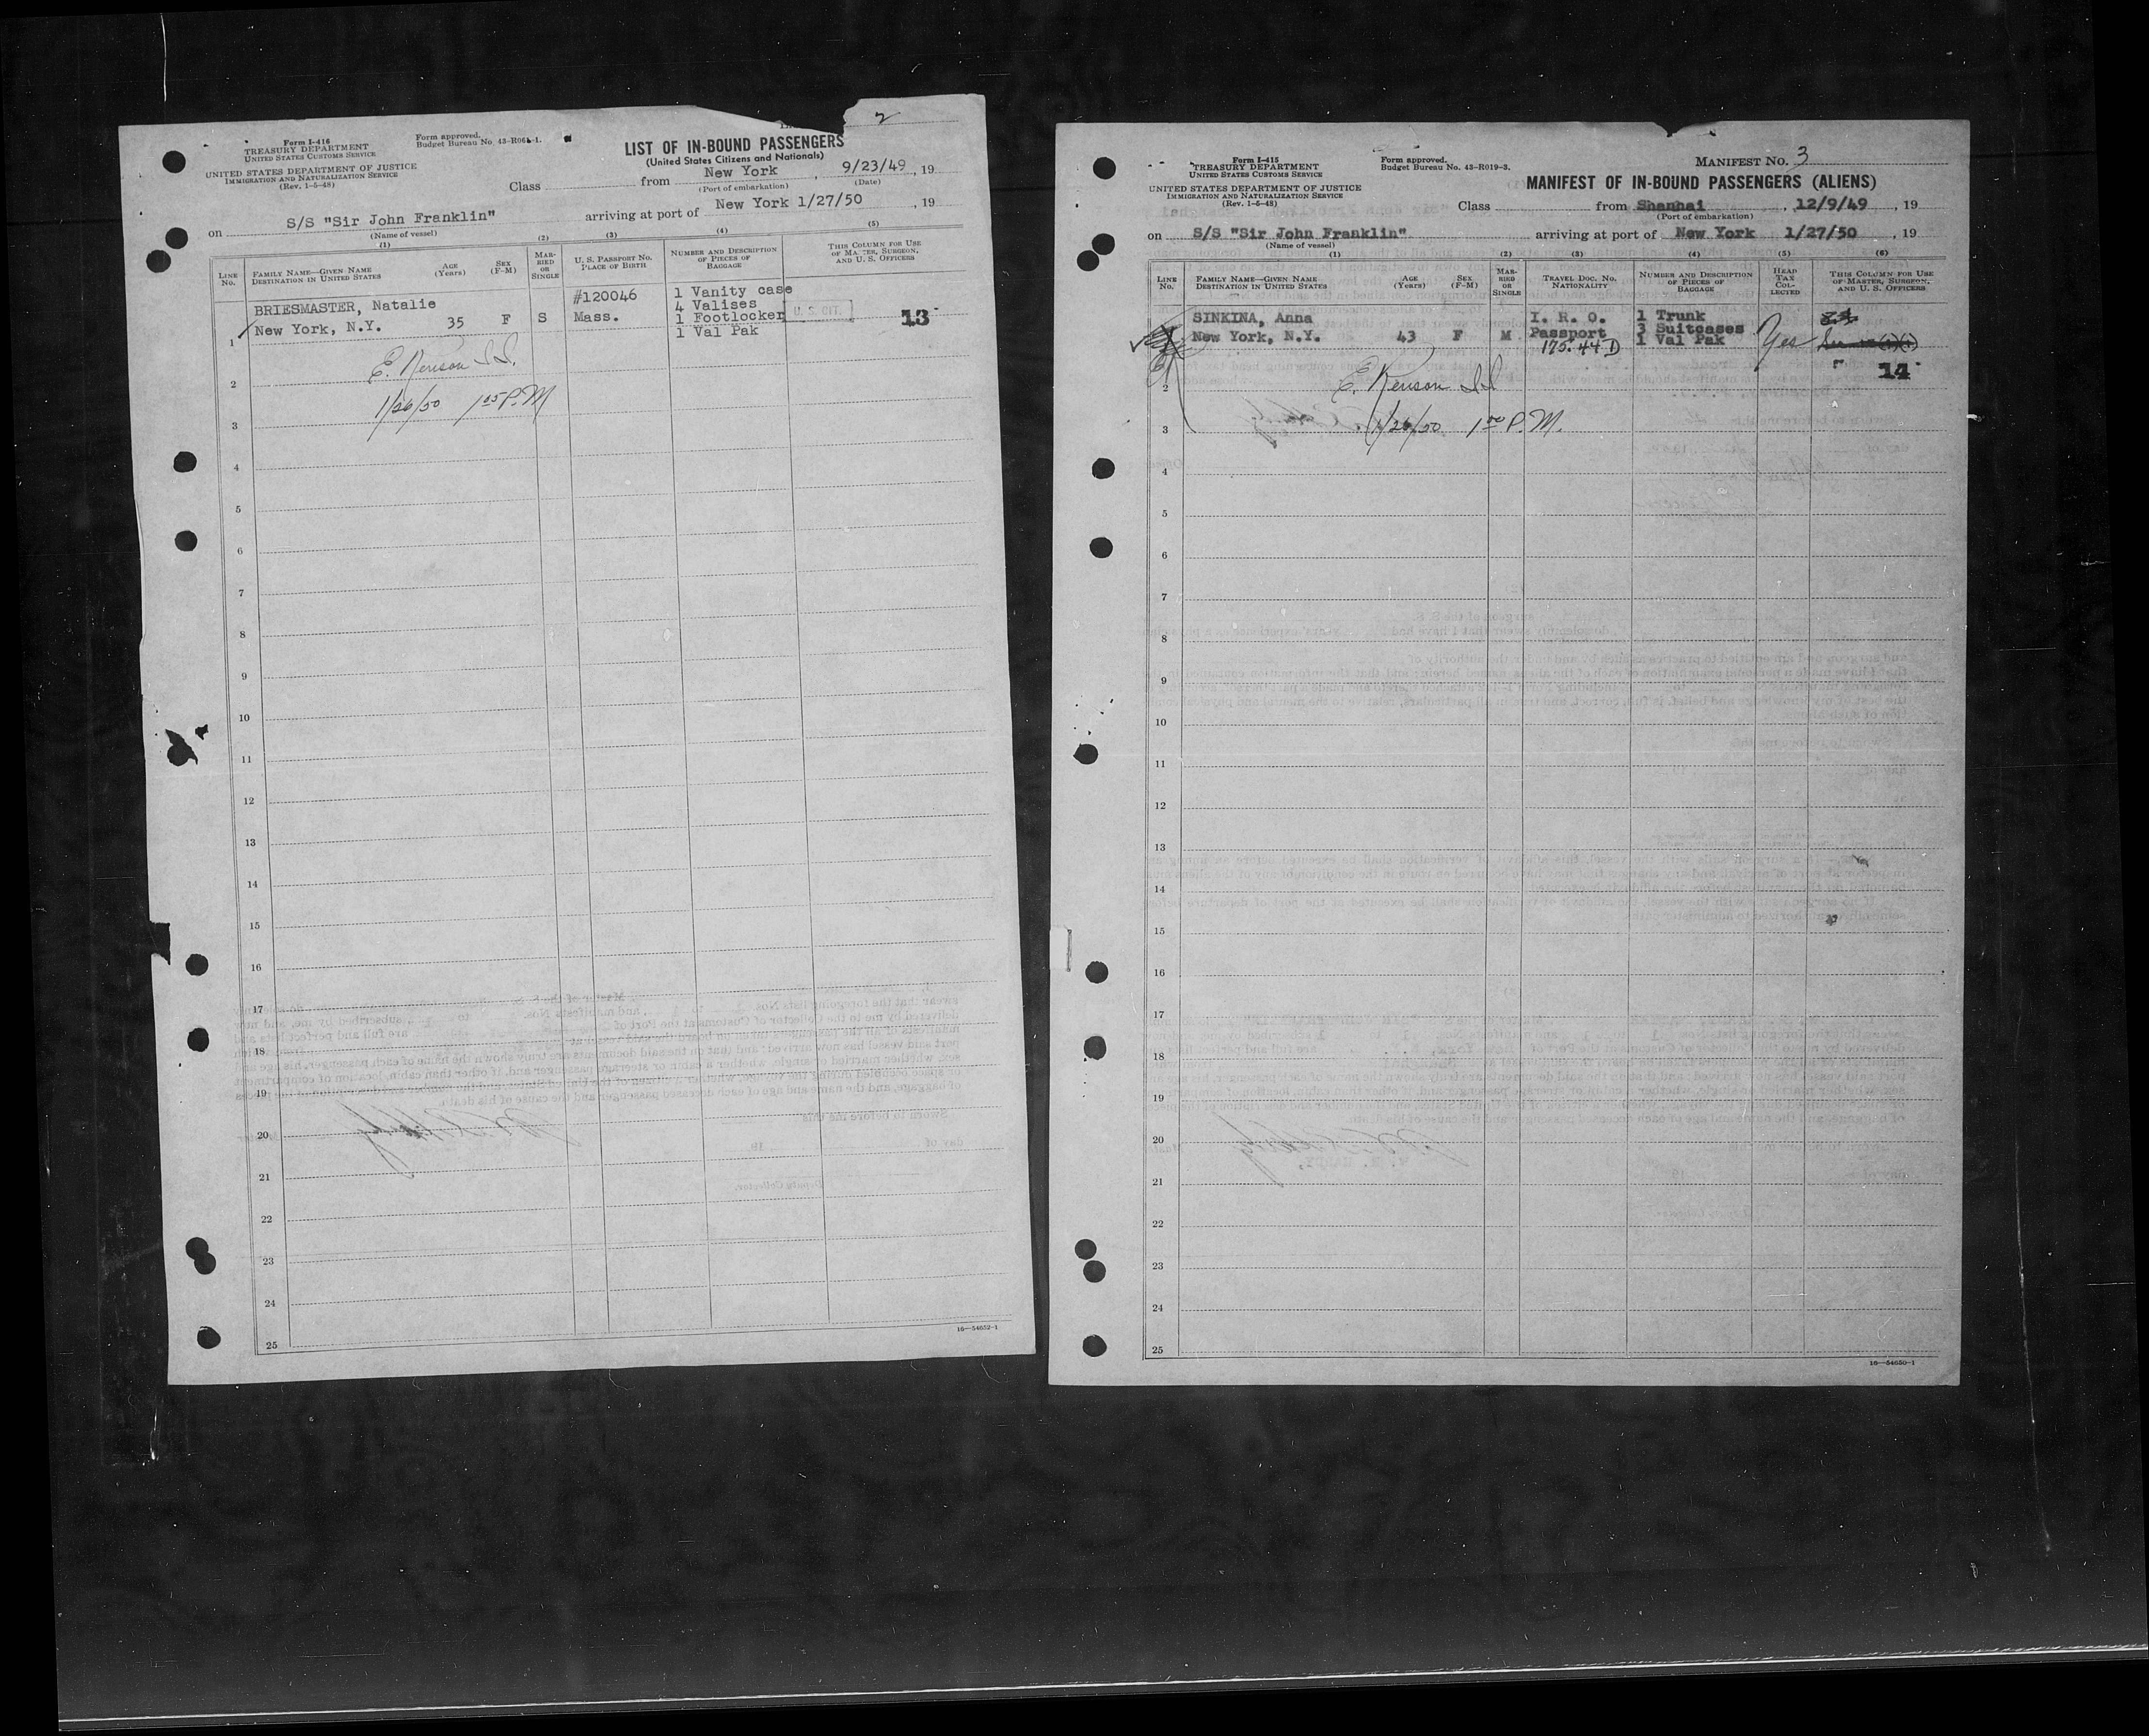 2
Form I-416
TREASURY DEPARTMENT
UNITED STATES CUSTOMS SERVICE
UNITED STATES DEPARTMENT OF JUSTICE
IMMIGRATION AND NATURALIZATION SERVICE
(Rev. 1-5-48)
Form approved.
Budget Bureau No. 43-R061-1.
LIST OF IN-BOUND PASSENGERS
(United States Citizens and Nationals)
Class from New York , 9/23/49 , 19
(Port of embarkation) (Date)
on S/S "Sir John Franklin" arriving at port of New York 1/27/50 , 19
(Name of vessel)
(1) (2) (3) (4) (5)
LINE No.
FAMILY NAME—GIVEN NAME
DESTINATION IN UNITED STATES
AGE (Years)
SEX (F-M)
MARRIED OR SINGLE
U. S. PASSPORT NO.
PLACE OF BIRTH
NUMBER AND DESCRIPTION OF PIECES OF BAGGAGE
THIS COLUMN FOR USE OF MASTER, SURGEON, AND U. S. OFFICERS
BRIESMASTER, Natalie #120046 1 Vanity case
4 Valises
New York, N.Y. 35 F S Mass. 1 Footlocker U. S. CIT. 13
1 1 Val Pak
E. Kenson
2
1/26/50 1 05 P.M
3
4
5
6
7
8
9
10
11
12
13
14
15
16
17
18
19
20
21
22
23
24
25
16—54652-1
Form I-415
TREASURY DEPARTMENT
UNITED STATES CUSTOMS SERVICE
UNITED STATES DEPARTMENT OF JUSTICE
IMMIGRATION AND NATURALIZATION SERVICE
(Rev. 1-5-48)
Form approved.
Budget Bureau No. 43-R019-3.
MANIFEST NO. 3
MANIFEST OF IN-BOUND PASSENGERS (ALIENS)
Class from Shanhai , 12/9/49 , 19
(Port of embarkation)
on S/S "Sir John Franklin" arriving at port of New York 1/27/50 , 19
(Name of vessel)
(1) (2) (3) (4) (5) (6)
LINE No.
FAMILY NAME—GIVEN NAME
DESTINATION IN UNITED STATES
AGE (Years)
SEX (F-M)
MARRIED OR SINGLE
TRAVEL DOC. NO.
NATIONALITY
NUMBER AND DESCRIPTION OF PIECES OF BAGGAGE
HEAD TAX COLLECTED
THIS COLUMN FOR USE OF MASTER, SURGEON, AND U. S. OFFICERS
SINKINA, Anna I. R. O. 1 Trunk
3 Suitcases
New York, N.Y. 43 F M Passport 1 Val Pak Yes
175.44D
14
2 E. Kenson
3 1/26/50 1 00 P.M.
4
5
6
7
8
9
10
11
12
13
14
15
16
17
18
19
20
21
22
23
24
25
16—54650-1